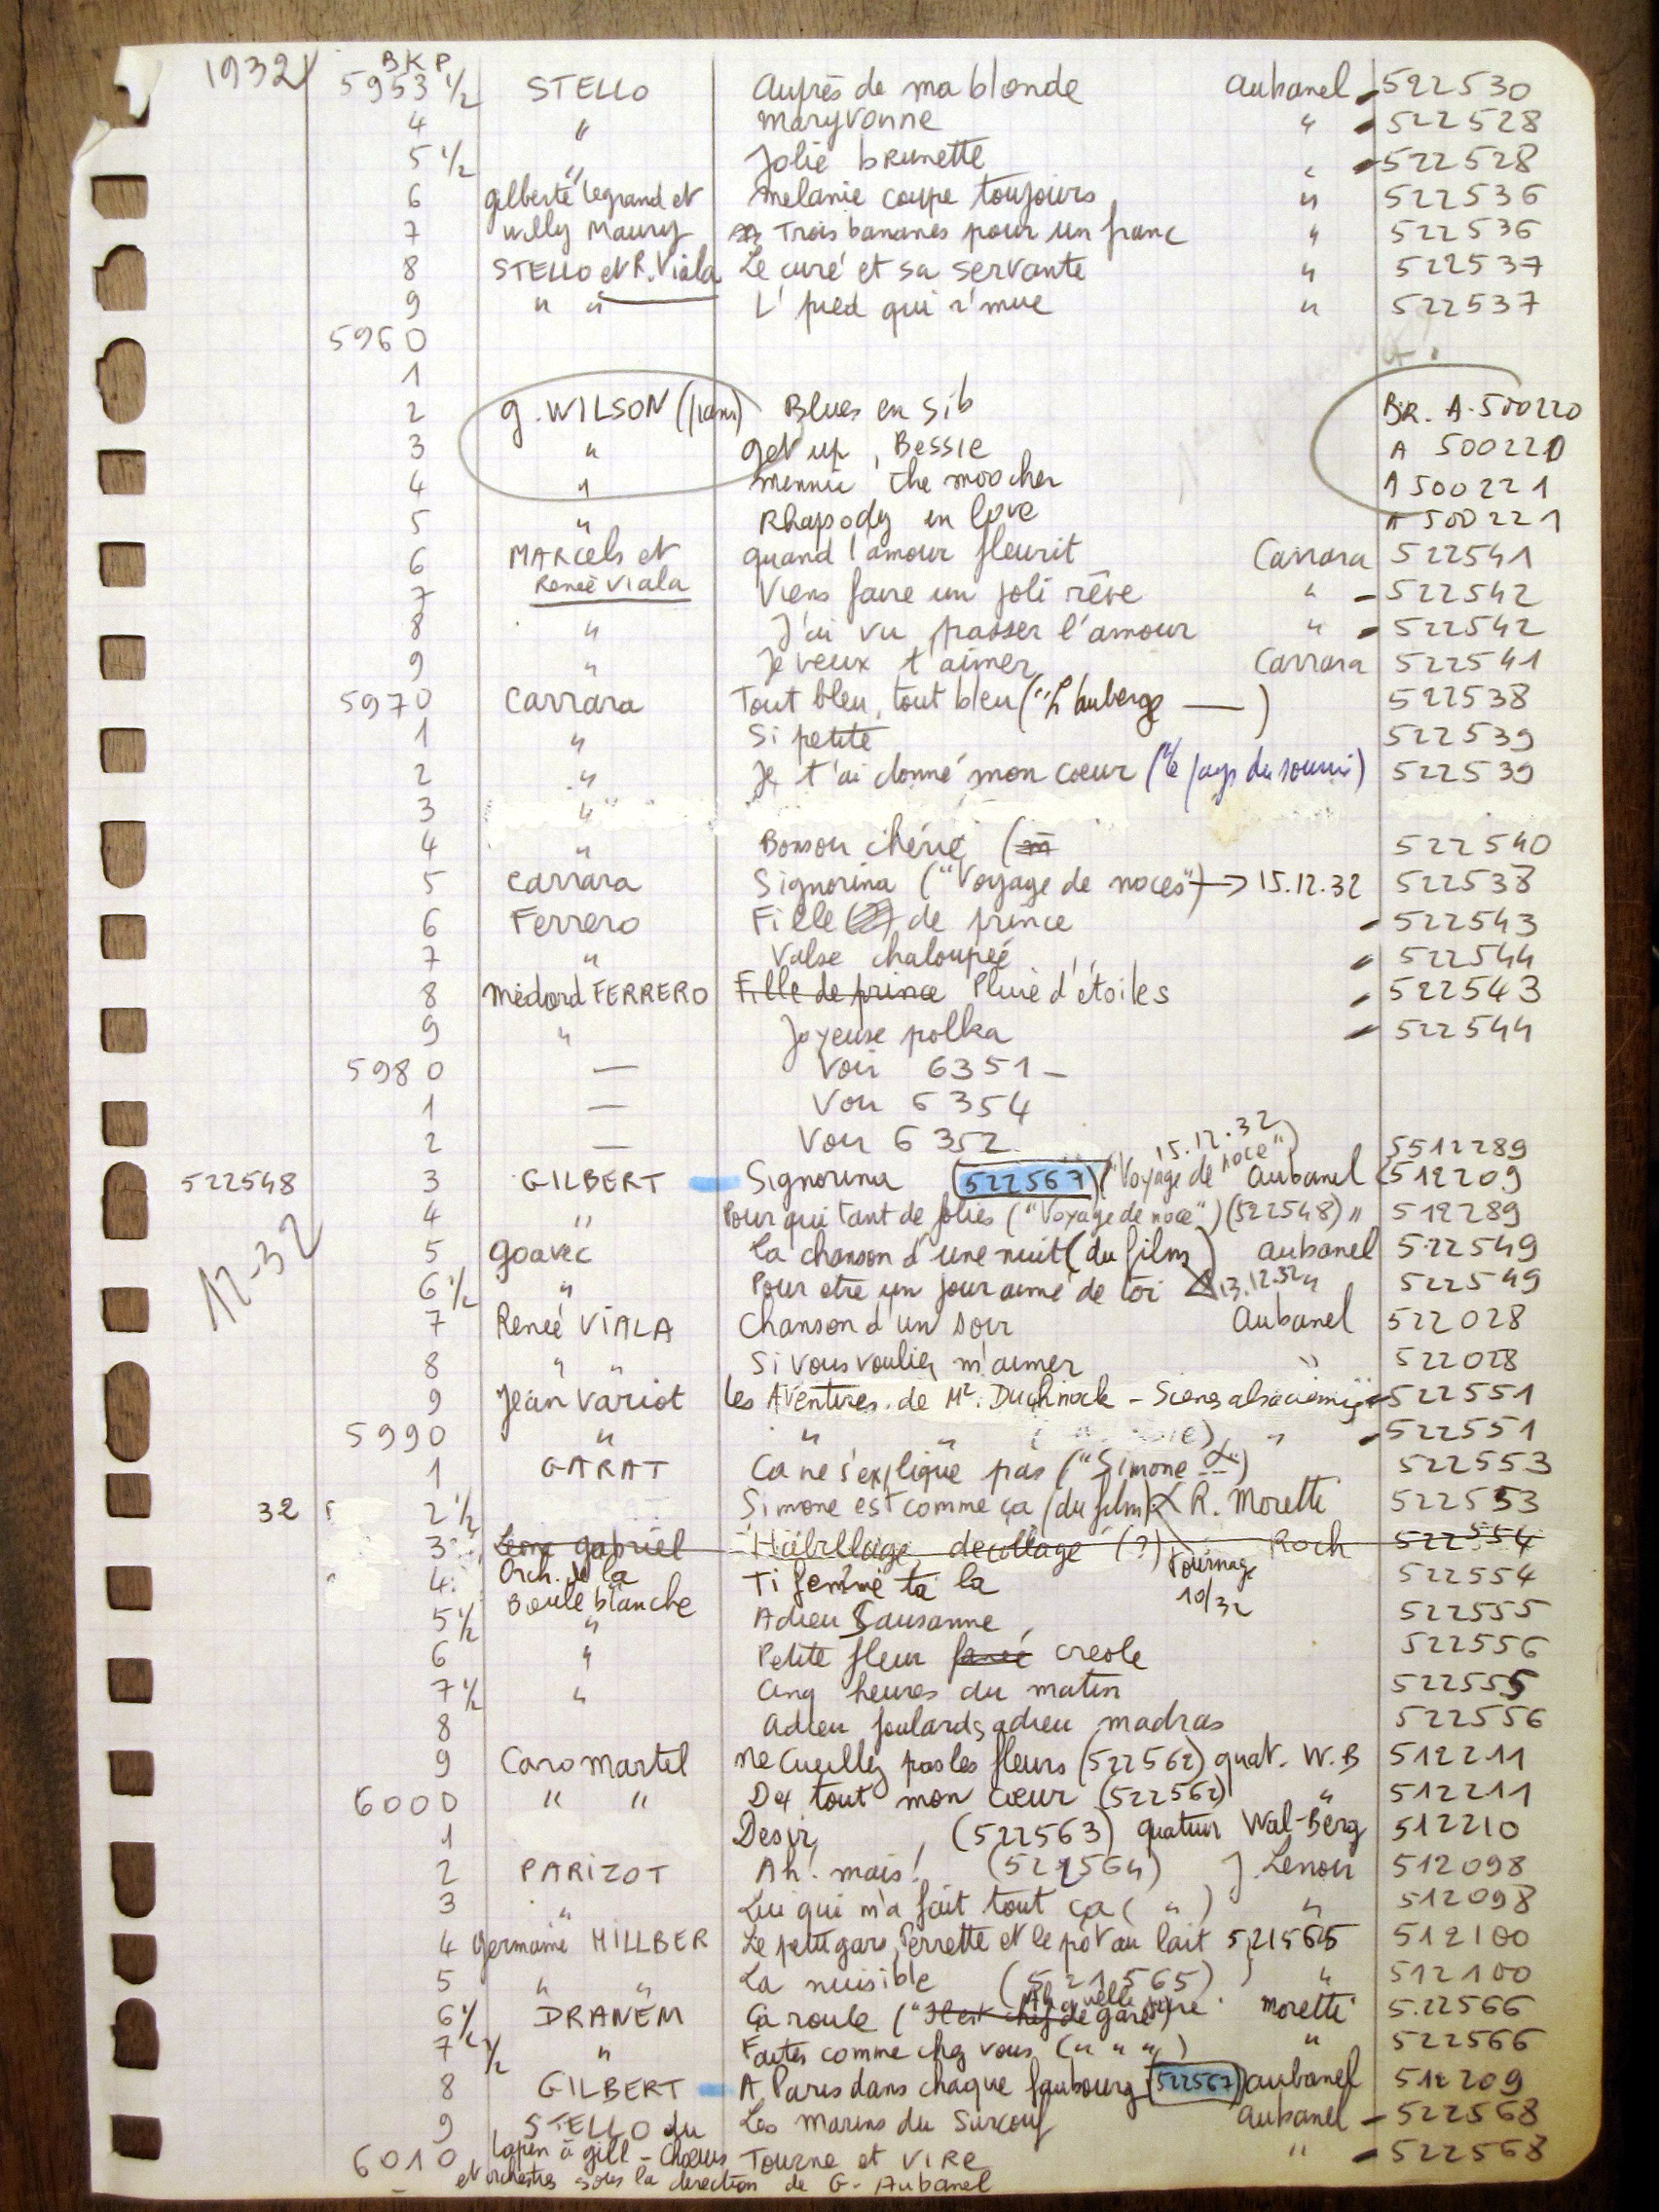 1932 BKP
5953 1/2 STELLO Auprès de ma blonde Aubanel 522530
4 " Maryvonne " 522528
5 1/2 " Jolie brunette " 522528
6 Gilberte Legrand et Melanie coupe toujours " 522536
7 Willy Maury Trois bananes pour un franc " 522536
8 STELLO et R. Viala Le curé et sa servante " 522537
9 " " L' pied qui r'mue " 522537
5960
1
2 G. WILSON (piano) Blues en sib BR. A. 500220
3 " Get up, Bessie A 500220
4 " Minnie the moocher A 500221
5 " Rhapsody in love A 500221
6 MARcels et quand l'amour fleurit Carrara 522541
7 Reneé Viala Viens faire un joli rêve " 522542
8 " J'ai vu passer l'amour " 522542
9 " Je veux t'aimer Carrara 522541
5970 Carrara Tout bleu, tout bleu ("L'auberge — ) 522538
1 " Si petite 522539
2 " Je t'ai donné mon cœur ("le pays du sourire) 522539
3 "
4 " Bonsoir chérie ( 522540
5 Carrara Signorina ("Voyage de noces") → 15.12.32 522538
6 Ferrero Fille de prince 522543
7 " Valse chaloupée 522544
8 Médard FERRERO Fille de prince Pluie d'étoiles 522543
9 " Joyeuse polka 522544
5980 — Voir 6351 —
1 — Voir 6354
2 — Voir 6352 15.12.32 5512289
522548 3 GILBERT Signorina (522567) ("Voyage de noce") Aubanel 512209
4 " Pour qui tant de folies ("Voyage de noce") (522548) " 512289
12-32 5 Goavec La chanson d'une nuit (du film) Aubanel 522549
6 1/2 " Pour etre un jour aimé de toi 13.12.32 " 522549
7 Reneé VIALA Chanson d'un soir Aubanel 522028
8 " " Si vous vouliez m'aimer " 522028
9 Jean Variot les Aventures de Mr. Duchnock - 522551
5990 " " " " 522551
1 GARAT Ca ne s'explique pas ("Simone ") 522553
32 2 1/2 Simone est comme ça (du film) R. Moretti 522553
3 Leona Gabriel Habillage, décollage (?) Roch 522554
4 Orch. de la Ti femme ta la tournage 10/32 522554
5 1/2 Boule blanche " Adieu Sausanne 522555
6 " Petite fleur fanée creole 522556
7 1/2 " Cinq heures du matin 522555
8 Adieu foulards, adieu madras 522556
9 Caro Martel Ne cueillez pas les fleurs (522562) quat. W.B 512211
6000 " " De tout mon cœur (522562) " 512211
1 Desir, (522563) quatuor Wal-Berg 512210
2 PARIZOT Ah! mais! (521564) J Lenoir 512098
3 " Lui qui m'a fait tout ça ( " ) " 512098
4 Germaine HILLBER Le petit gars, Perrette et le pot au lait 521565 512100
5 " " La nuisible (521565) " 512100
6 1/2 DRANEM Ça roule ("Il est chef de gare") Ah quelle gare Moretti 522566
7 1/2 " Faites comme chez vous ( " " " ) " 522566
8 GILBERT A Paris dans chaque faubourg (522567) Aubanel 512209
9 STELLO du Les marins du Surcouf Aubanel 522568
6010 Lapin à gill - chœurs Tourne et vire " 522568
et orchestres sous la direction de G. Aubanel